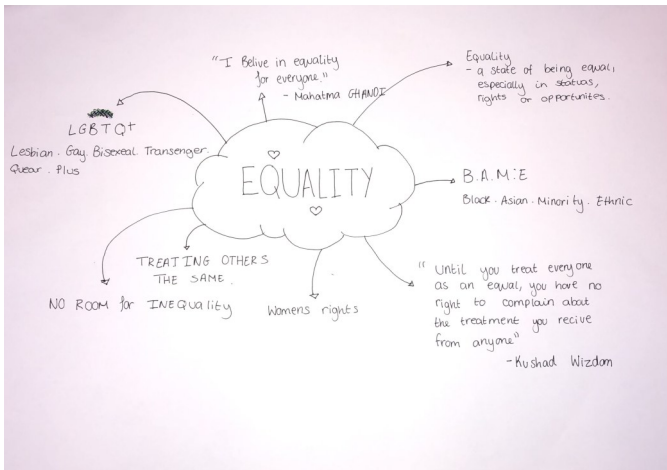 "I Belive in equality
for everyone."
- Mahatma GHANDI
Equality
- a state of being equal,
especially in status,
rights or opportunites.
LGBTQ+
Lesbian . Gay . Bisexeal . Transenger .
Quear . Plus
EQUALITY
B.A.M.E
Black . Asian . Minority . Ethnic
TREATING OTHERS
THE SAME .
NO ROOM for INEQuality
Womens rights
"Until you treat everyone
as an equal, you have no
right to complain about
the treatment you recive
from anyone"
- Kushad Wizdom